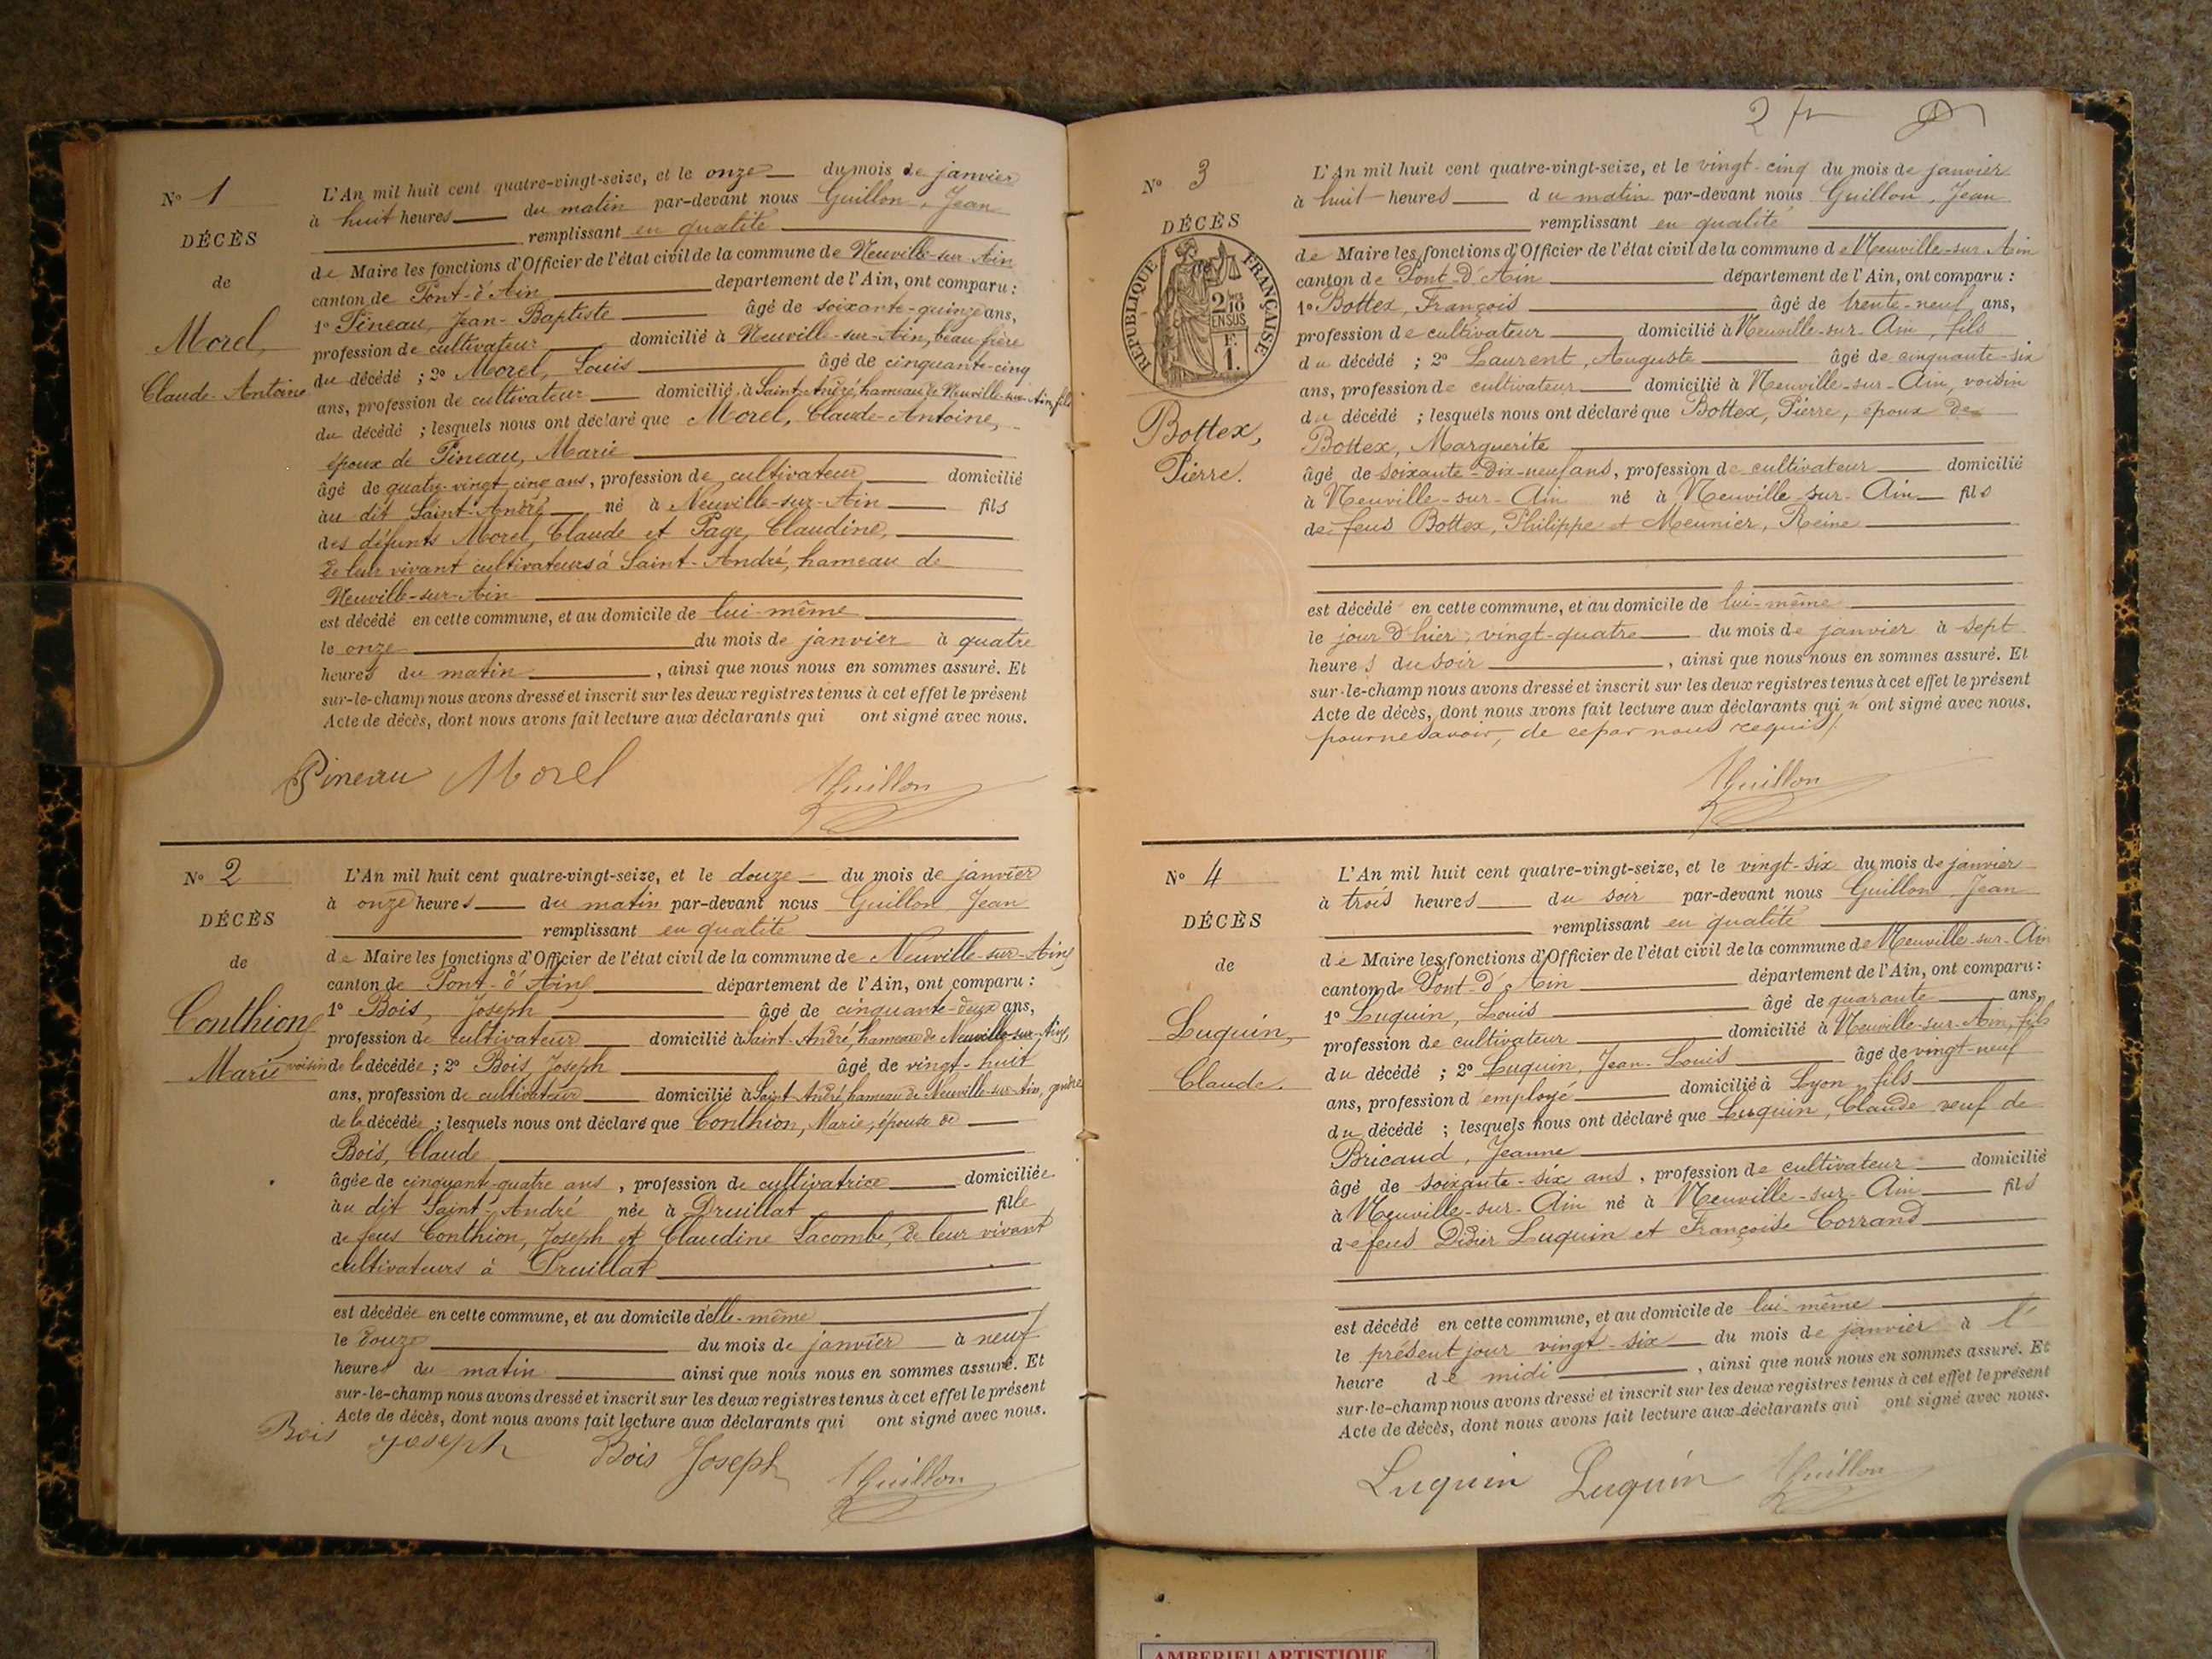 N° 1
DÉCÈS
de
Morel,
Claude-Antoine
L'An mil huit cent quatre-vingt-seize, et le onze du mois de janvier
à huit heures du matin par-devant nous Guillon, Jean
remplissant en qualité
de Maire les fonctions d'Officier de l'état civil de la commune de Neuville-sur-Ain
canton de Pont-d'Ain département de l'Ain, ont comparu :
1° Pineau, Jean-Baptiste âgé de soixante-quinze ans,
profession de cultivateur domicilié à Neuville-sur-Ain, beau frère
du décédé ; 2° Morel, Louis âgé de cinquante-cinq
ans, profession de cultivateur domicilié à Saint-André, hameau de Neuville-sur-Ain, fils
du décédé ; lesquels nous ont déclaré que Morel, Claude-Antoine,
époux de Pineau, Marie
âgé de quatre-vingt cinq ans, profession de cultivateur domicilié
au dit Saint-André né à Neuville-sur-Ain fils
des défunts Morel, Claude et Page, Claudine,
de leur vivant cultivateurs à Saint-André, hameau de
Neuville-sur-Ain
est décédé en cette commune, et au domicile de lui-même
le onze du mois de janvier à quatre
heures du matin , ainsi que nous nous en sommes assuré. Et
sur-le-champ nous avons dressé et inscrit sur les deux registres tenus à cet effet le présent
Acte de décès, dont nous avons fait lecture aux déclarants qui ont signé avec nous.
Pineau Morel Guillon
N° 2
DÉCÈS
de
Conthion
Marie
L'An mil huit cent quatre-vingt-seize, et le douze du mois de janvier
à onze heures du matin par-devant nous Guillon Jean
remplissant en qualité
de Maire les fonctions d'Officier de l'état civil de la commune de Neuville-sur-Ain
canton de Pont-d'Ain département de l'Ain, ont comparu :
1° Bois, Joseph âgé de cinquante-deux ans,
profession de cultivateur domicilié à Saint-André, hameau de Neuville-sur-Ain,
voisin de la décédée ; 2° Bois, Joseph âgé de vingt-huit
ans, profession de cultivateur domicilié à Saint-André, hameau de Neuville-sur-Ain, gendre
de la décédée ; lesquels nous ont déclaré que Conthion, Marie, épouse de
Bois, Claude
âgée de cinquante-quatre ans , profession de cultivatrice domiciliée
au dit Saint-André née à Druillat fille
de feus Conthion, Joseph et Claudine Lacombe, de leur vivant
cultivateurs à Druillat
est décédée en cette commune, et au domicile d'elle-même
le douze du mois de janvier à neuf
heures du matin ainsi que nous nous en sommes assuré. Et
sur-le-champ nous avons dressé et inscrit sur les deux registres tenus à cet effet le présent
Acte de décès, dont nous avons fait lecture aux déclarants qui ont signé avec nous.
Bois Joseph Bois Joseph Guillon
2
N° 3
DÉCÈS
RÉPUBLIQUE FRANÇAISE
2/10
EN SUS
F.
1.
Bottex,
Pierre.
L'An mil huit cent quatre-vingt-seize, et le vingt-cinq du mois de janvier
à huit heures du matin par-devant nous Guillon, Jean
remplissant en qualité
de Maire les fonctions d'Officier de l'état civil de la commune de Neuville-sur-Ain
canton de Pont-d'Ain département de l'Ain, ont comparu :
1° Bottex, François âgé de trente-neuf ans,
profession de cultivateur domicilié à Neuville-sur-Ain, fils
du décédé ; 2° Laurent, Auguste âgé de cinquante-six
ans, profession de cultivateur domicilié à Neuville-sur-Ain, voisin
du décédé ; lesquels nous ont déclaré que Bottex, Pierre, époux de
Bottex, Marguerite
âgé de soixante-dix-neuf ans, profession de cultivateur domicilié
à Neuville-sur-Ain né à Neuville-sur-Ain fils
de feus Bottex, Philippe et Meunier, Reine
est décédé en cette commune, et au domicile de lui-même
le jour d'hier, vingt-quatre du mois de janvier à sept
heures du soir , ainsi que nous nous en sommes assuré. Et
sur-le-champ nous avons dressé et inscrit sur les deux registres tenus à cet effet le présent
Acte de décès, dont nous avons fait lecture aux déclarants qui n'ont signé avec nous.
pour ne savoir, de ce par nous requis
Guillon
N° 4
DÉCÈS
de
Luquin,
Claude.
L'An mil huit cent quatre-vingt-seize, et le vingt-six du mois de janvier
à trois heures du soir par-devant nous Guillon, Jean
remplissant en qualité
de Maire les fonctions d'Officier de l'état civil de la commune de Neuville-sur-Ain
canton de Pont-d'Ain département de l'Ain, ont comparu :
1° Luquin, Louis âgé de quarante ans,
profession de cultivateur domicilié à Neuville-sur-Ain, fils
du décédé ; 2° Luquin, Jean-Louis âgé de vingt-neuf
ans, profession d'employé domicilié à Lyon, fils
du décédé ; lesquels nous ont déclaré que Luquin, Claude veuf de
Bricaud, Jeanne
âgé de soixante-six ans, profession de cultivateur domicilié
à Neuville-sur-Ain né à Neuville-sur-Ain fils
de feus Didier Luquin et Françoise Corrand
est décédé en cette commune, et au domicile de lui-même
le présent jour vingt-six du mois de janvier à l'
heure de midi , ainsi que nous nous en sommes assuré. Et
sur-le-champ nous avons dressé et inscrit sur les deux registres tenus à cet effet le présent
Acte de décès, dont nous avons fait lecture aux déclarants qui ont signé avec nous.
Luquin Luquin Guillon
AMBERIEU ARTISTIQUE